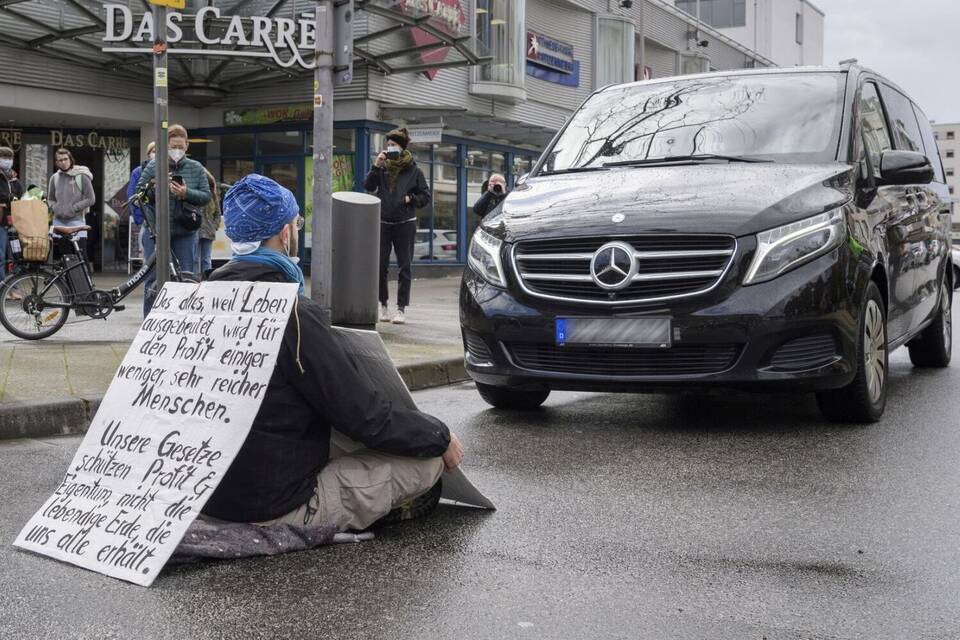 DAS CARRÉ
DAS CARRÉ
Das alles, weil Leben
ausgebeutet wird für
den Profit einiger
weniger, sehr reicher
Menschen.
Unsere Gesetze
schützen Profit &
Eigentum, nicht die
lebendige Erde, die
uns alle erhält.